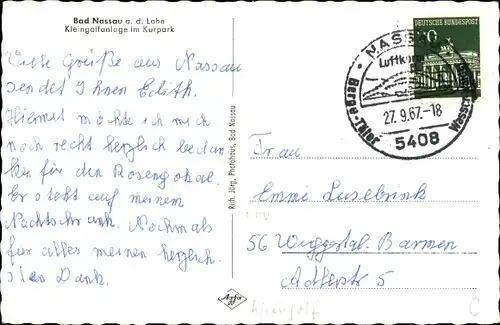 Bad Nassau a. d. Lahn
Kleingolfanlage im Kurpark
Viele Grüße aus Nassau
sendet Ihnen Edith.
Hiermit möchte ich mich
noch recht herzlich bedan
ken für den Rosenpokal.
Er steht auf meinem
Nachtschrank. Nochmals
für alles meinen herzlich
sten Dank.
Rich. Jörg, Photohaus, Bad Nassau
Agfa
DEUTSCHE BUNDESPOST
NASSAU
Luftkurort
Berge-Täler
27. 9. 67.-18
5408
Frau
Emmi Lusebrink
56 Wuppertal-Barmen
5